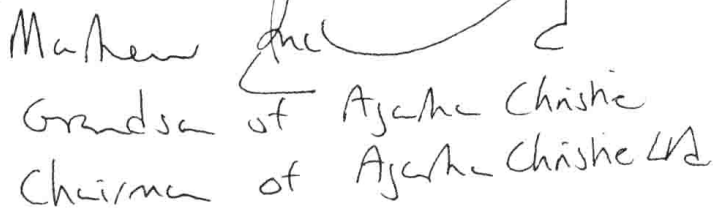 Mathew
Grandson of Agatha Christie
Chairman of Agatha Christie Ltd